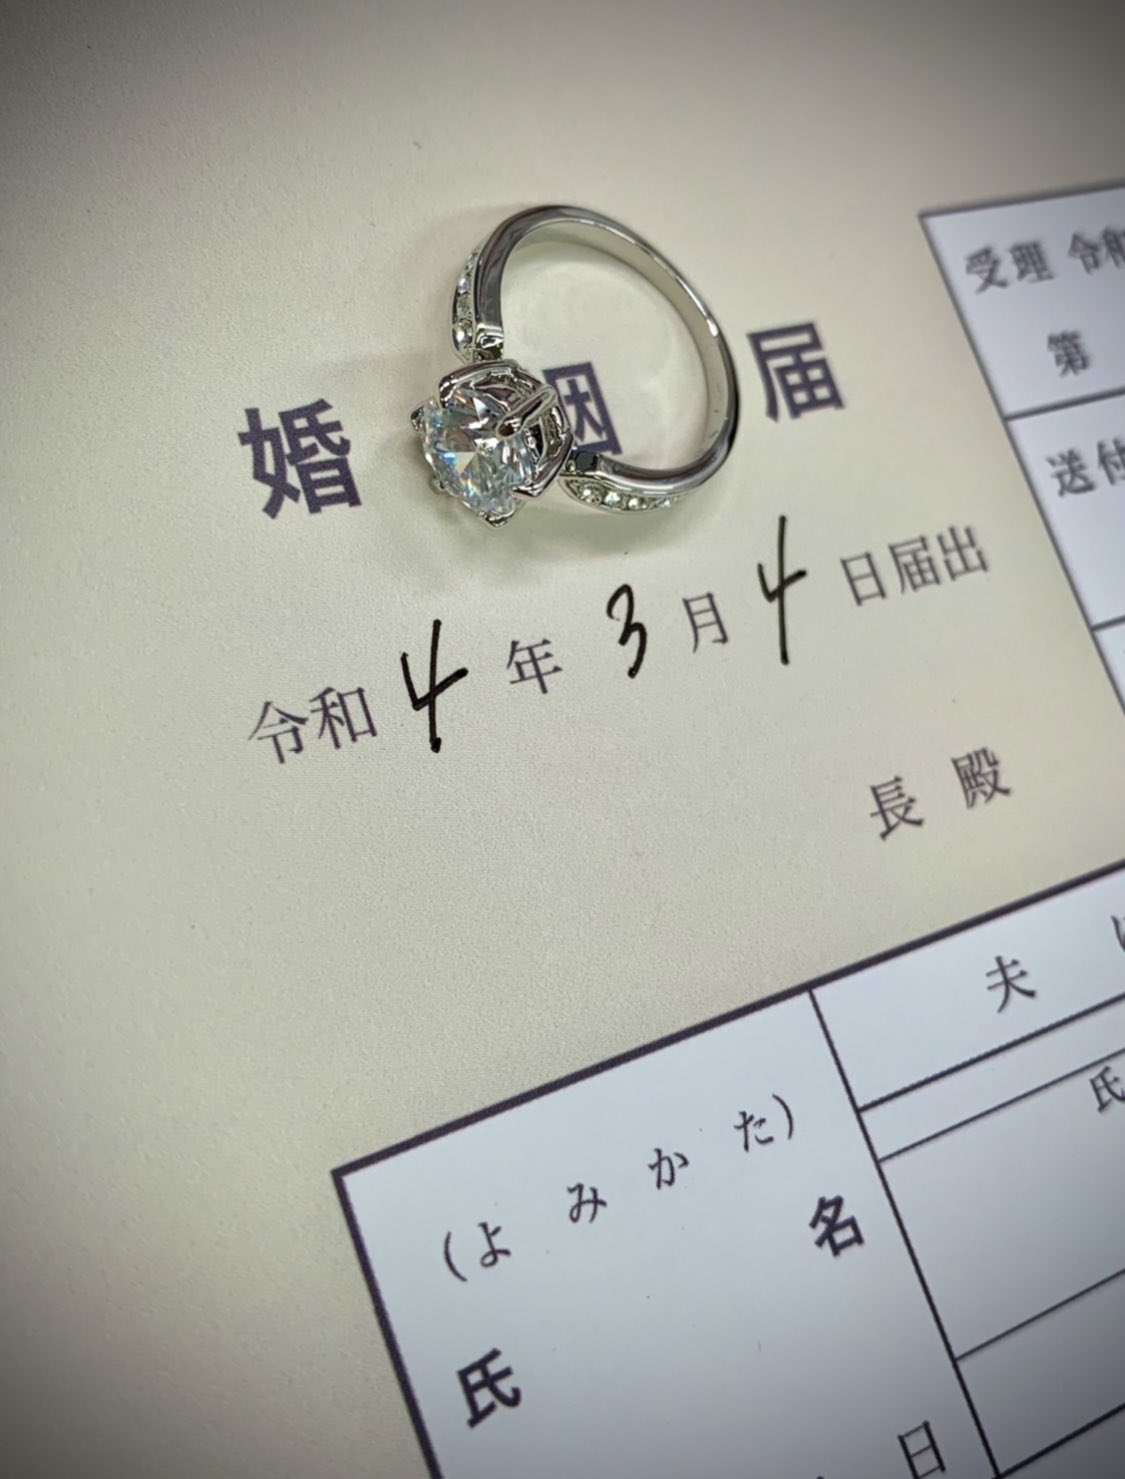 婚姻届
令和4年3月4日届出
長殿
受理 令和
第
送付
夫
(よみかた)
氏
氏名
日